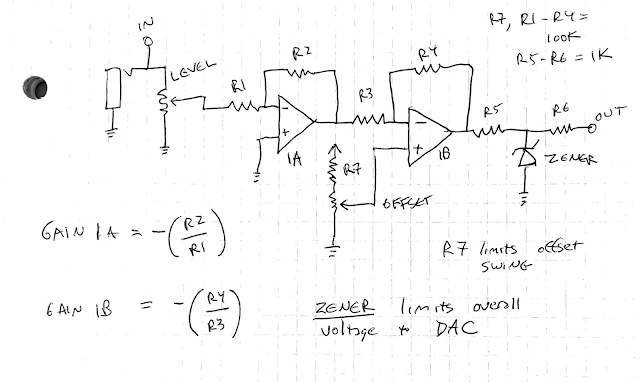 IN
R7, R1-R4 =
100K
R5-R6 = 1K
LEVEL
R1
R2
R3
R4
R5
R6
OUT
-
+
1A
-
+
1B
R7
OFFSET
ZENER
GAIN 1A = -(R2/R1)
R7 limits offset
SWING
GAIN 1B = -(R4/R3)
ZENER limits overall
voltage to DAC